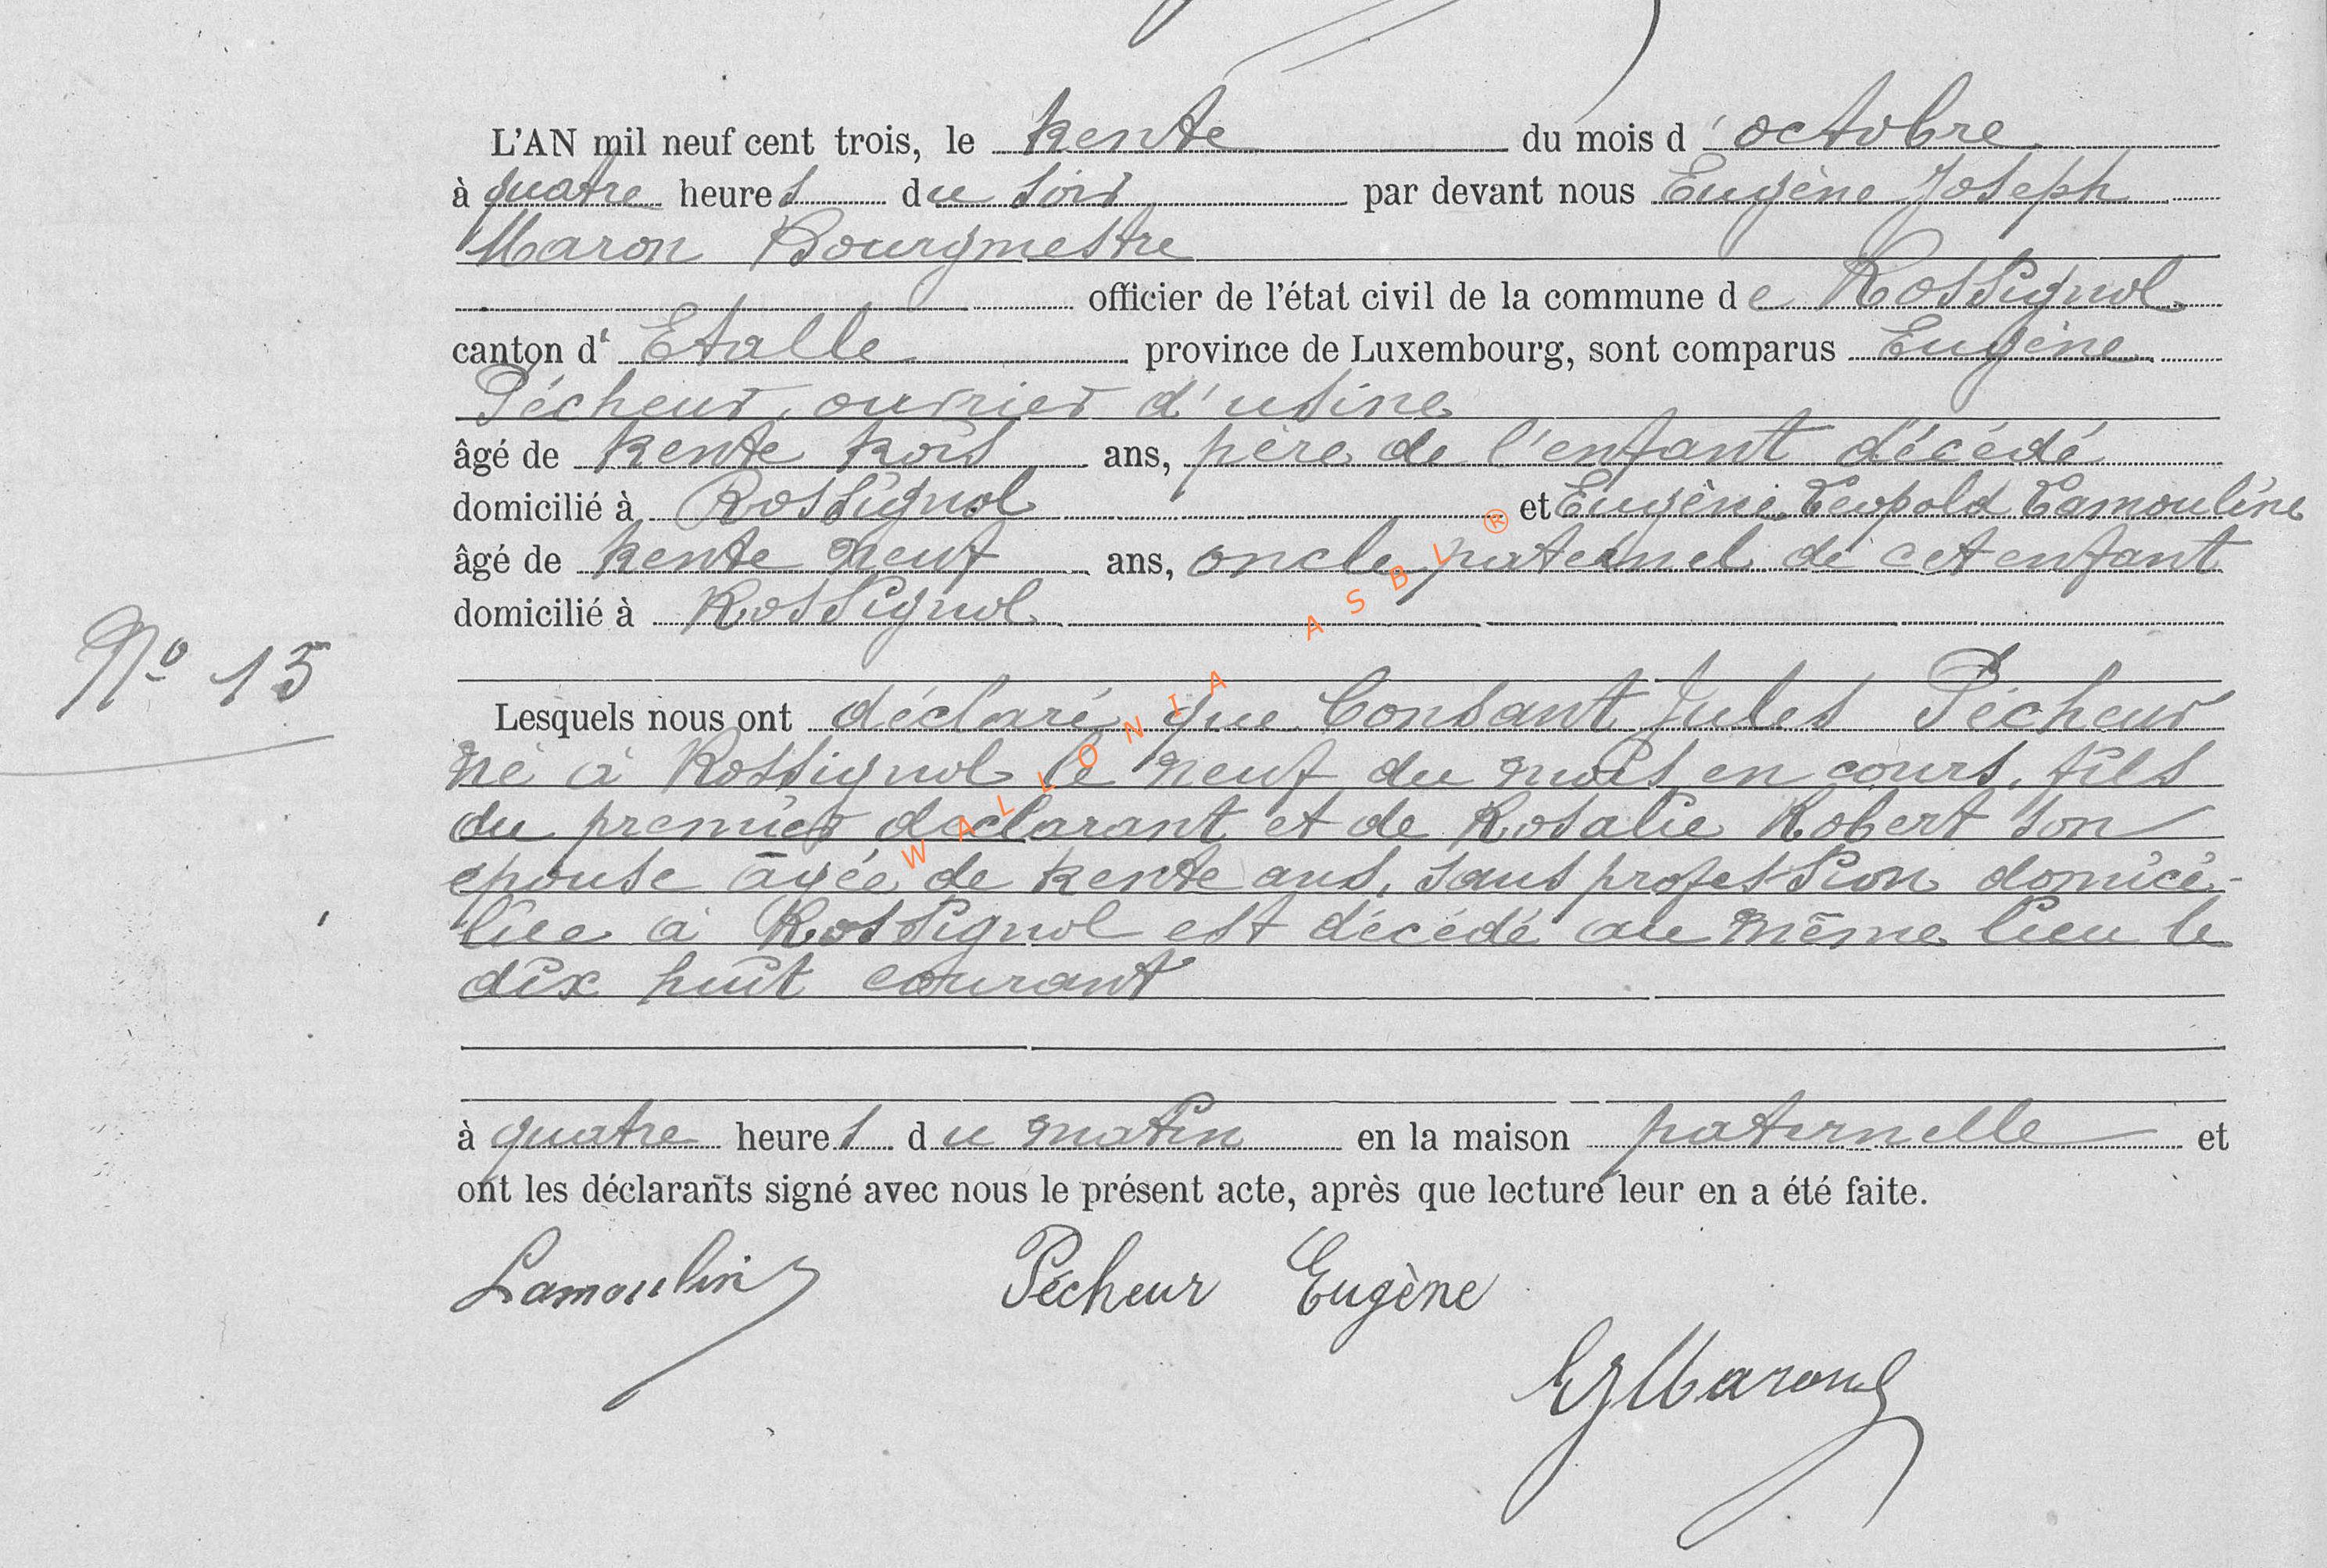 L'AN mil neuf cent trois, le trente du mois d'octobre
à quatre heures du soir par devant nous Eugène Joseph
Maron Bourgmestre
officier de l'état civil de la commune de Rossignol
canton d'Etalle province de Luxembourg, sont comparus Eugène
Pécheur, ouvrier d'usine
âgé de trente trois ans, père de l'enfant décédé
domicilié à Rossignol et Eugène Léopold Lamouline
âgé de trente neuf ans, oncle paternel de cet enfant
domicilié à Rossignol
Nº 15
Lesquels nous ont déclaré que Consant Jules Pécheur
né à Rossignol le neuf du mois en cours, fils
du premier declarant et de Rosalie Robert son
epouse âgée de trente ans, sans profession domici-
liée à Rossignol est décédé au même lieu le
dix huit courant
à quatre heures du matin en la maison paternelle et
ont les déclarants signé avec nous le présent acte, après que lecture leur en a été faite.
Lamoulin Pécheur Eugène
EJ Maron
WALLONIA ASBL ®